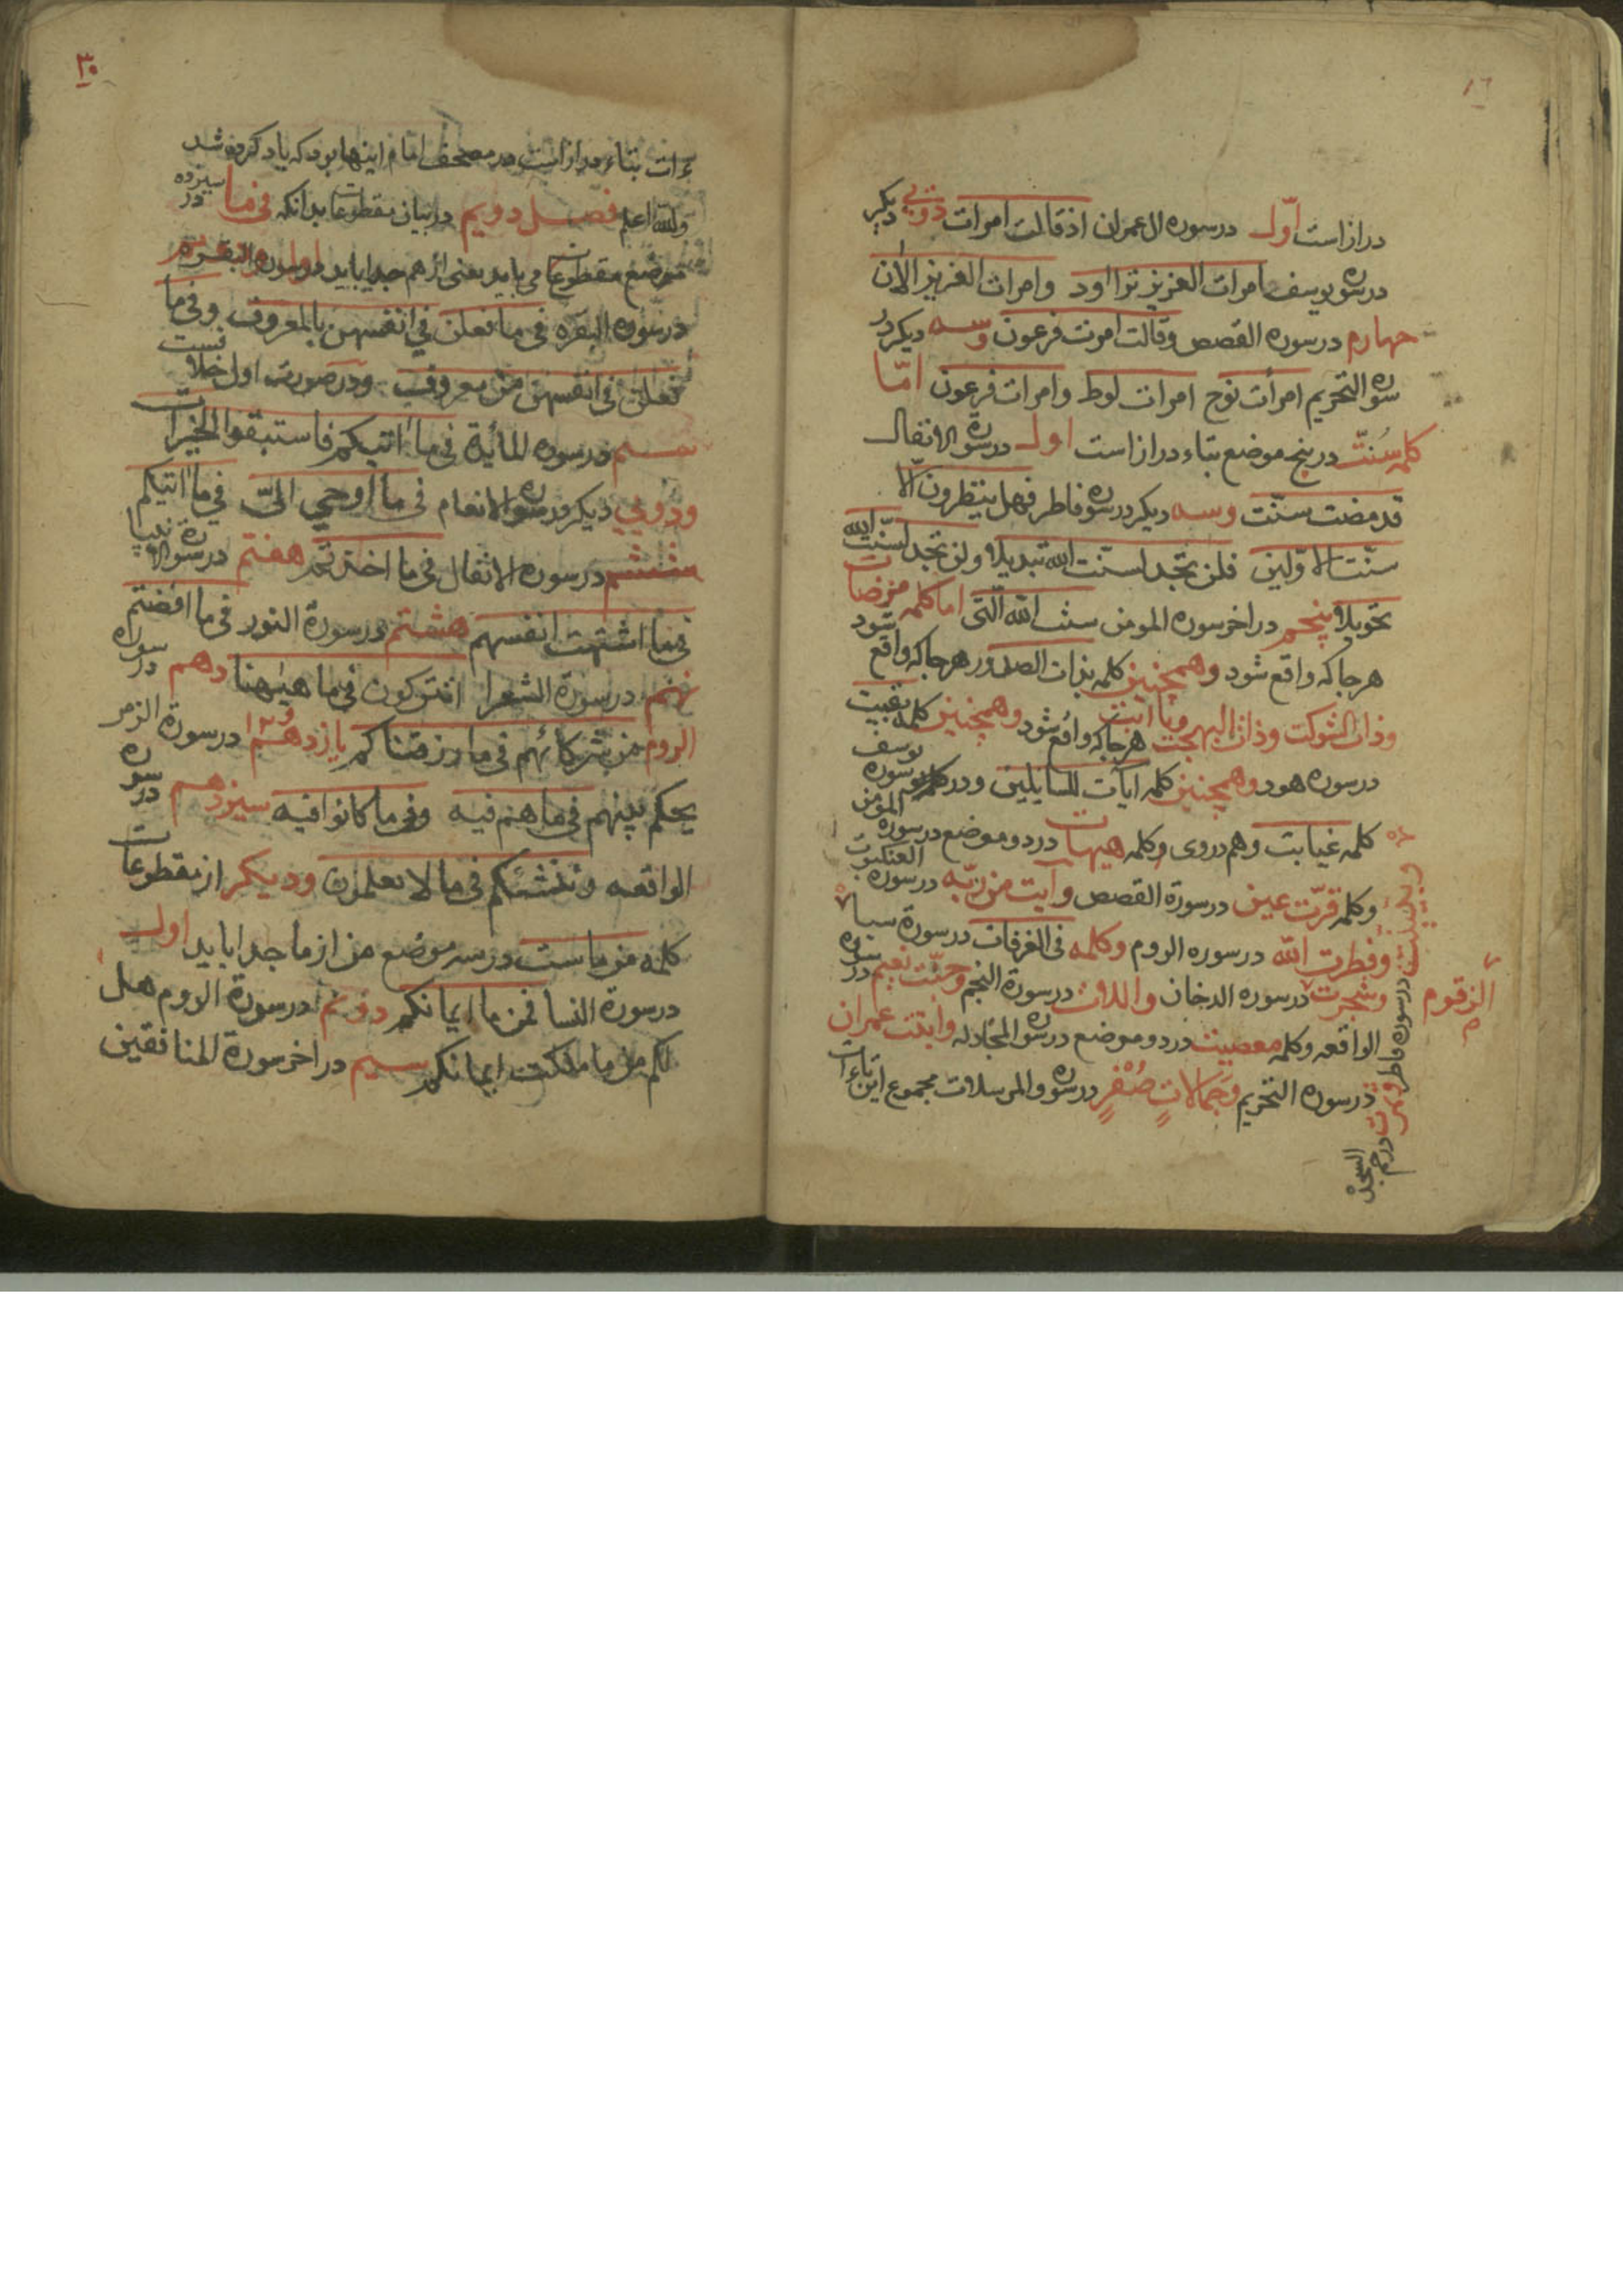 دراز است اوّل در سوره ال عمران اذ قالت امرات دویی دیکر
در سوره یوسف امرات العزیز تراود وامرات العزیز الان
چهارم در سوره القصص وقالت امرت فرعون وسه دیکر در
سوره التحریم امرأت نوح امرات لوط وامرات فرعون امّا
کلمه سُنّت در پنج موضع بتاء دراز است اول در سورة الانفال
قد مضت سنّت وسه دیکر در سوره فاطر فهل ینظرون الّا
سنّت الاوّلین فلن تجد لسنّت الله تبدیلا ولن تجد لسنّت الله
تحویلا پنجم در اخر سوره المومن سنت الله الّتی اما کلمه مرضات
هرجا که واقع شود وهمچنین کلمه بذات الصدور هرجا که واقع شود
وذات الشوکت وذات البهجت ویا ابت هرجا که واقع شود وهمچنین کلمه بقیت
در سوره هود وهمچنین کلمه ایآت للسایلین در سوره یوسف
کلمه غیابت وهم در وی وکلمه هیهات در دو موضع در سوره المؤمن
وکلمه قرّت عین در سورة القصص وآیت من ربّه در سوره العنکبوت
وفطرت الله در سوره الروم وکلمه فی الغرفات در سورة سبا
وشجرت در سوره الدخان واللات در سورة النجم وجنّت نعیم در سوره
الواقعه وکلمه معصیت در دو موضع در سوره المجادله وابنت عمران
در سوره التحریم وجمالاتٍ صُفْرٍ در سوره والمرسلات مجموع این تاءات
الزقوم
در سوره فاطر
السجده
٣٠
ءات بتاء دراز است در مصحف امام اینها بود که یاد کرده شد
والله اعلم فصل دویم در بیان مقطوعات بدانکه فی ما سیزده در
موضع مقطوعات می باید یعنی از هم جدا باید اول در سوره البقره
در سوره البقره فی ما فعلن فی انفسهن بالمعروف وفی ما
فعلن فی انفسهن من معروف ودر صورت اول خلاف نیست
در سوره المأیدة فی ما اتیکم فاستبقوا الخیرات
ودویی دیکر در سوره الانعام فی ما اوحی الیّ فی ما اتیکم
ششم در سوره الانفال فی ما اخذتم هفتم در سورة الانبیا
فی ما اشتهت انفسهم هشتم در سورة النور فی ما افضتم
نهم در سورة الشعرا اتترکون فی ما هیهنا دهم در سوره
الروم من شرکائهم فی ما رزقناکم یازدهم در سورة الزمر
یحکم بینهم فی ما هم فیه وفی ما کانوا فیه سیزدهم در سوره
الواقعه وننشئکم فی ما لا تعلمون ودیکر از مقطوعات
کلمه من ما ست در سه موضع من از ما جدا باید اول
در سورة النسا فمن ما ایمانکم دویم در سورة الروم هل
لکم من ما ملکت ایمانکم سیم در اخر سورة المنافقین